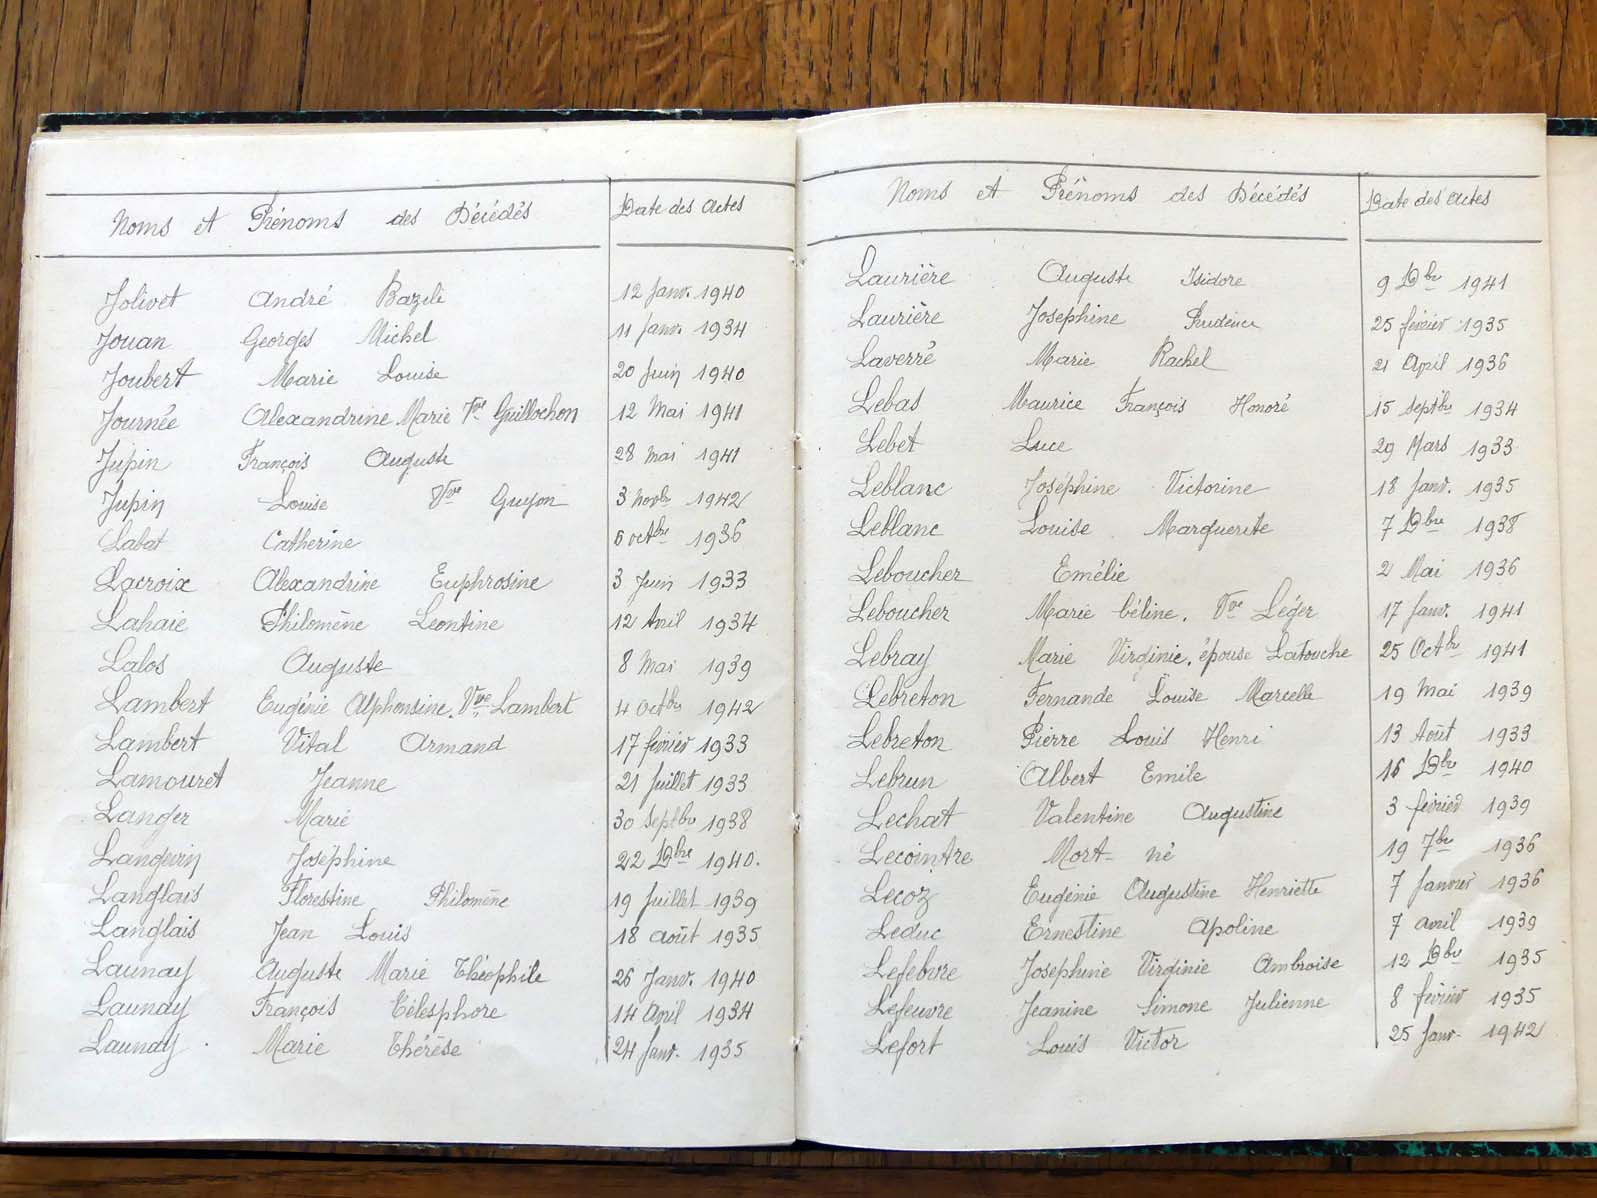 Noms et Prénoms des Décédés Date des Actes
Jolivet André Bazile 12 Janv. 1940
Jouan Georges Michel 11 Janv. 1934
Joubert Marie Louise 20 Juin 1940
Journée Alexandrine Marie Vve Guillochon 12 Mai 1941
Jupin François Auguste 28 Mai 1941
Jupin Louise Vve Guyon 3 Novbr 1942
Labat Catherine 6 octbre 1936
Lacroix Alexandrine Euphrosine 3 Juin 1933
Lahaie Philomène Leontine 12 Avril 1934
Lalos Auguste 8 Mai 1939
Lambert Eugénie Alphonsine. Vve Lambert 4 Octbre 1942
Lambert Vital Armand 17 février 1933
Lamouret Jeanne 21 Juillet 1933
Langer Marie 30 Septbre 1938
Langevin Joséphine 22 Dbre 1940.
Langlais Florestine Philomène 19 Juillet 1939
Langlais Jean Louis 18 Août 1935
Launay Auguste Marie Théophile 26 Janv. 1940
Launay François Télesphore 14 Avril 1934
Launay Marie Thérèse 24 Janv. 1935
Noms et Prénoms des Décédés Date des Actes
Laurière Auguste Isidore 9 Dbre 1941
Laurière Josephine Prudence 25 février 1935
Laverré Marie Rachel 21 April 1936
Lebas Maurice François Honoré 15 Septbre 1934
Lebet Luce 29 Mars 1933
Leblanc Joséphine Victorine 18 Janv. 1935
Leblanc Louise Marguerite 7 Dbre 1938
Leboucher Emélie 2 Mai 1936
Leboucher Marie Céline. Vve Léger 17 Janv. 1941
Lebray Marie Virginie. épouse Latouche 25 Octbre 1941
Lebreton Fernande Louise Marcelle 19 Mai 1939
Lebreton Pierre Louis Henri 13 Août 1933
Lebrun Albert Emile 16 Dbre 1940
Lechat Valentine Augustine 3 février 1939
Lecointre Mort-né 19 7bre 1936
Lecoz Eugénie Augustine Henriette 7 Janvier 1936
Leduc Ernestine Apoline 7 avril 1939
Lefebvre Josephine Virginie Ambroise 12 Dbre 1935
Lefeuvre Jeanine Simone Julienne 8 février 1935
Lefort Louis Victor 25 Janv. 1942